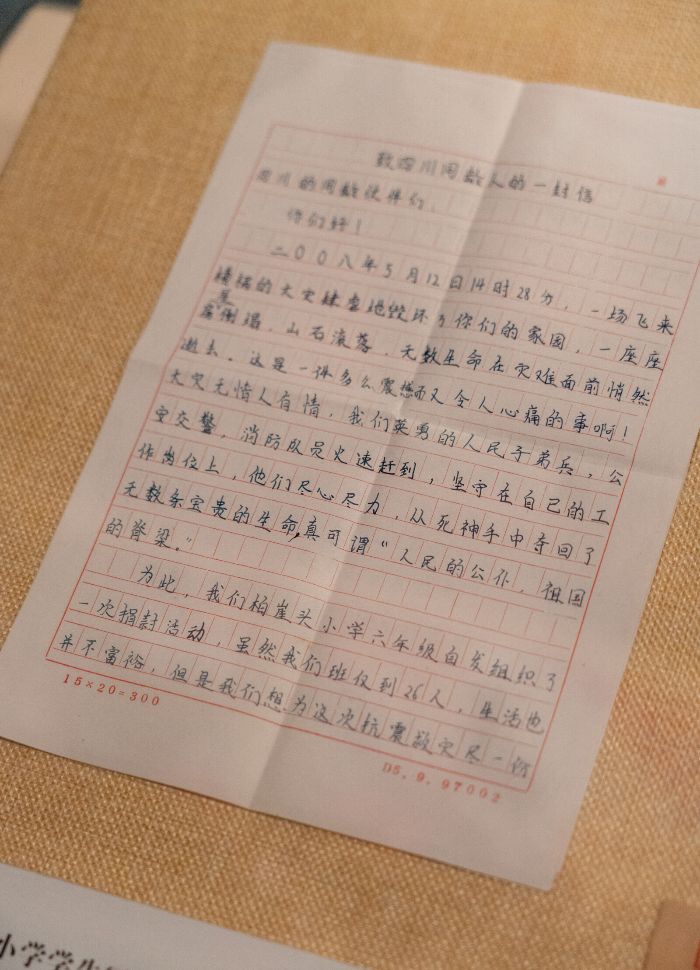 致四川同龄人的一封信
四川的同龄伙伴们:
你们好!
二〇〇八年5月12日14时28分,一场飞来
横祸的大灾肆虐地毁坏了你们的家园,一座座
房屋倒塌,山石滚落,无数生命在灾难面前悄然
逝去。这是一件多么震撼而又令人心痛的事啊!
大灾无情人有情,我们英勇的人民子弟兵,公
安交警,消防队员火速赶到,坚守在自己的工
作岗位上,他们尽心尽力,从死神手中夺回了
无数条宝贵的生命,真可谓“人民的公仆,祖国
的脊梁。”
为此,我们柏崖头小学六年级自发组织了
一次捐款活动,虽然我们班仅到26人,生活也
并不富裕,但是我们想为这次抗震救灾尽一份
15×20=300
D5.9.97002
小学学生